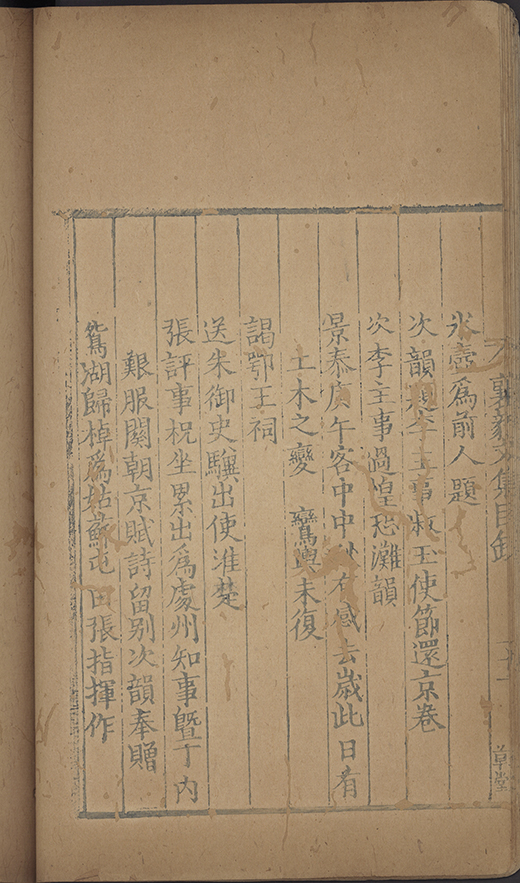 氷壺爲前人題
次韻題李主事淑玉使節還京卷
次李主事過惶恐灘韻
景泰庚午客中中秋有感去歲此日有
土木之變　鸞輿未復
謁鄂王祠
送朱御史驥出使淮楚
張評事柷坐累出爲處州知事曁丁内
艱服闋朝京賦詩留别次韻奉贈
鴛湖歸棹爲姑蘇屯田張指揮作
文集目錄
草堂